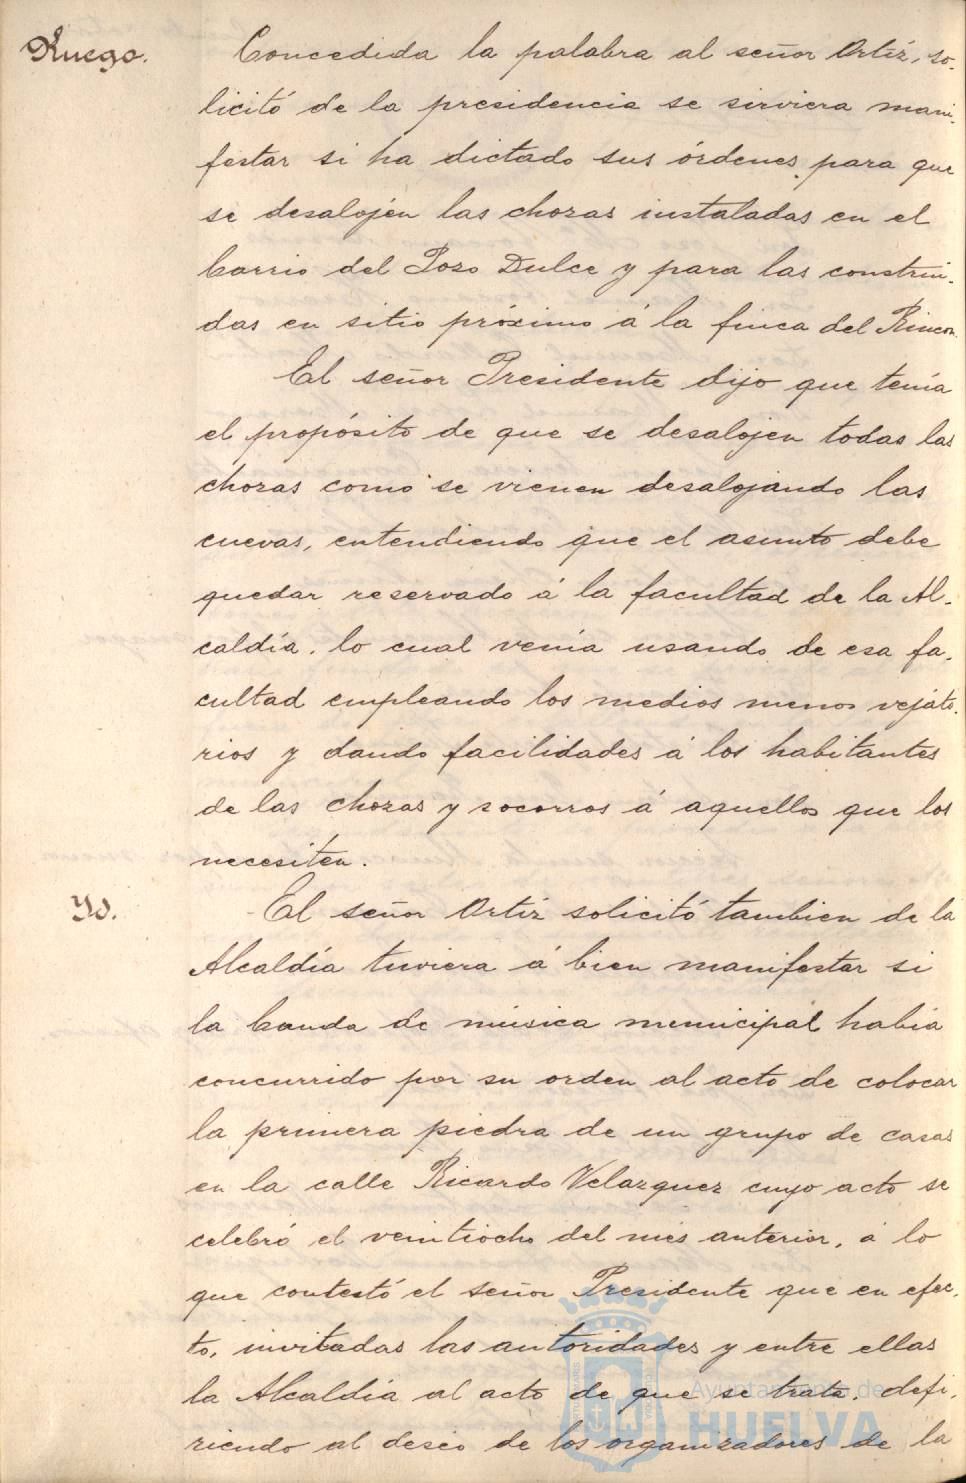 Ruego.
Concedida la palabra al señor Ortíz, so-
licitó de la presidencia se sirviera mani-
festar si ha dictado sus órdenes para que
se desalojen las chozas instaladas en el
barrio del Pozo Dulce y para las construi-
das en sitio próximo á la finca del Rincon.
El señor Presidente dijo que tenía
el propósito de que se desalojen todas las
chozas como se vienen desalojando las
cuevas, entendiendo que el asunto debe
quedar reservado á la facultad de la Al-
caldía, lo cual venía usando de esa fa-
cultad empleando los medios menos vejato-
rios y dando facilidades á los habitantes
de las chozas y socorros á aquellos que los
necesiten.
Yd.
El señor Ortíz solicitó tambien de la
Alcaldía tuviera á bien manifestar si
la banda de música municipal había
concurrido por su orden al acto de colocar
la primera piedra de un grupo de casas
en la calle Ricardo Velazquez cuyo acto se
celebró el veintiocho del mes anterior, á lo
que contestó el señor Presidente que en efec-
to, invitadas las autoridades y entre ellas
la Alcaldía al acto de que se trata, defi-
riendo al deseo de los organizadores de la
Ayuntamiento de
HUELVA